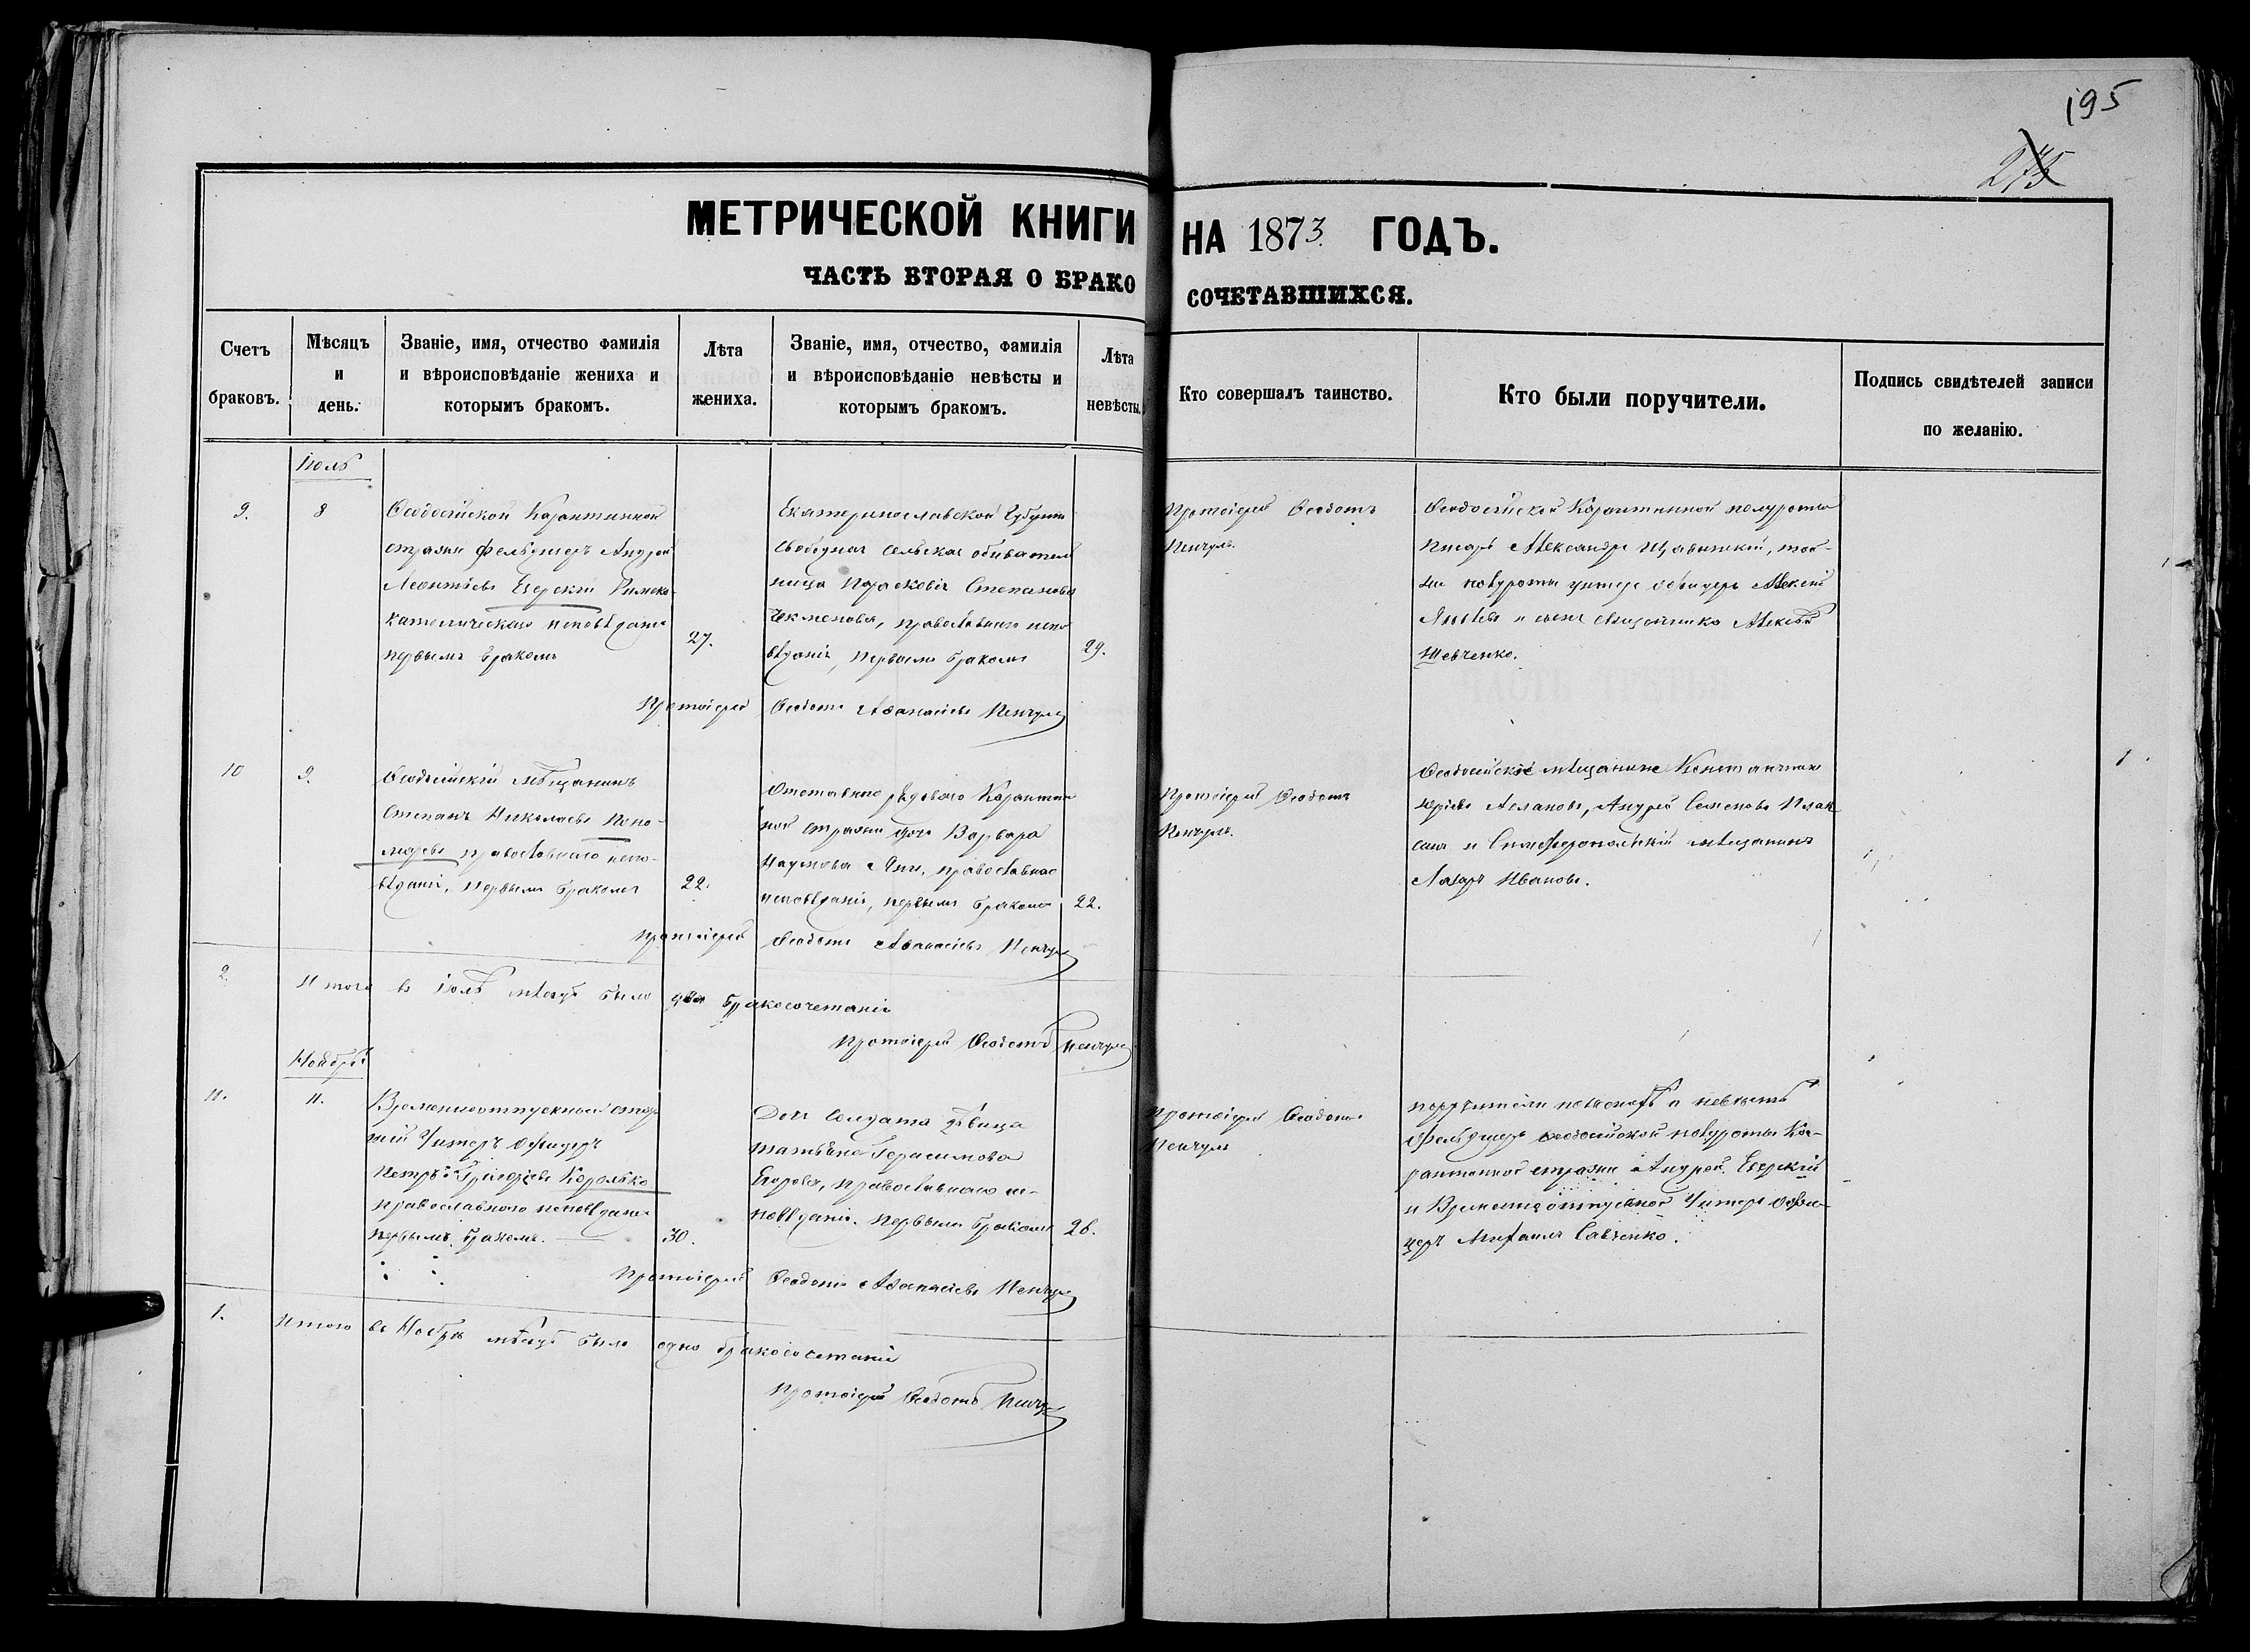 195
275
МЕТРИЧЕСКОЙ КНИГИ НА 1873 ГОДЪ.
ЧАСТЬ ВТОРАЯ О БРАКОСОЧЕТАВШИХСЯ.
Счетъ браковъ.
Мѣсяцъ и день.
Званіе, имя, отчество фамилія и вѣроисповѣданіе жениха и которымъ бракомъ.
Лѣта жениха.
Званіе, имя, отчество, фамилія и вѣроисповѣданіе невѣсты и которымъ бракомъ.
Лѣта невѣсты.
Кто совершалъ таинство.
Кто были поручители.
Подпись свидѣтелей записи по желанію.
Іюль
9.
8
Ѳеодосійской Карантинной
стражи фельдшеръ Андрей
Леонтіевъ Езерскій Римско-
католическаго исповѣданія
первымъ бракомъ
27.
Екатеринославской Губерніи
свободная сельская обыватель
ница Параскевія Степанова
православнаго испо
вѣданія, первымъ бракомъ
29.
Протоіерей Ѳеодотъ
Ѳеодосійской Карантинной полуроты
писарь Александръ той-
же полуроты унтеръ офицеръ Алексѣй
и сынъ Алексѣй
Шевченко.
Протоіерей Ѳеодотъ Аѳанасіевъ
10
9.
Ѳеодосійскій мѣщанинъ
Степанъ Николаевъ Поно-
маревъ православнаго испо-
вѣданія, первымъ бракомъ
22.
Отставнаго рядоваго Карантин
ной стражи дочь Варвара
Наумова православнаго
исповѣданія, первымъ бракомъ
22.
Протоіерей Ѳеодотъ
Ѳеодосійскіе мѣщанине Константинъ
Юрьевъ Аслановъ, Андрей Семеновъ
и Симферопольскій мѣщанинъ
Лазарь Ивановъ.
Протоіерей Ѳеодотъ Аѳанасіевъ
2.
Итого въ Іюлѣ мѣсяцѣ было два бракосочетанія
Протоіерей Ѳеодотъ
Ноябрь
11.
11.
Временноотпускной стар
шій Унтеръ Офицеръ
Петръ Григорьевъ Королько
православнаго исповѣданія
первымъ бракомъ.
30.
Дочь Солдата дѣвица
Татьяна Герасимова
Егорова, православнаго ис-
повѣданія. первымъ бракомъ
26.
Протоіерей Ѳеодотъ
поручители по женихѣ и невѣстѣ
Фельдшеръ Ѳеодосійской полуроты Ка-
рантинной стражи Андрей Езерскій
и Временно отпускной Унтеръ Офи-
церъ Михаилъ Савченко.
Протоіерей Ѳеодотъ Аѳанасіевъ
1.
Итого въ Ноябрѣ мѣсяцѣ было одно бракосочетаніе
Протоіерей Ѳеодотъ